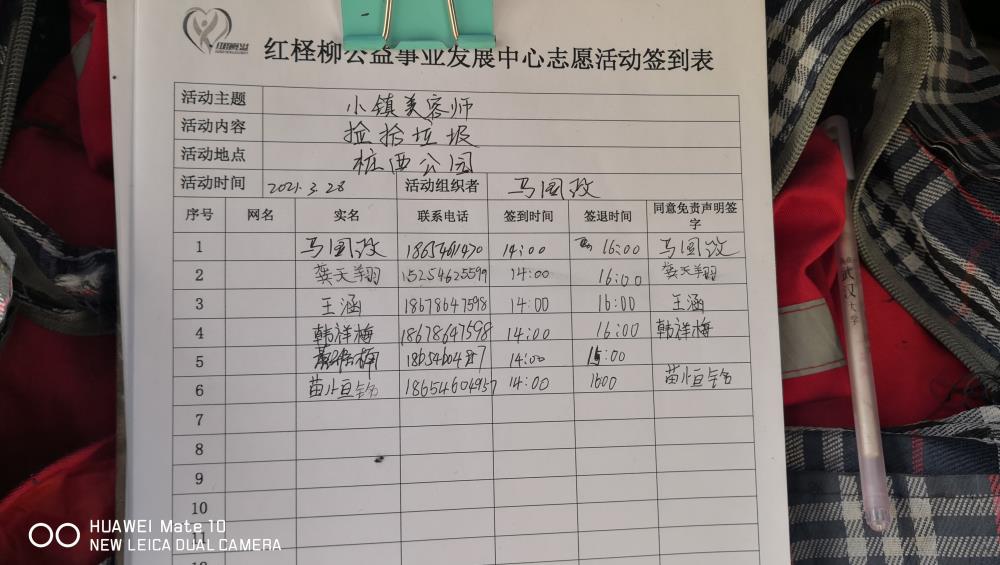 红柽柳公益事业发展中心志愿活动签到表
活动主题 小镇美容师
活动内容 捡拾垃圾
活动地点 桩西公园
活动时间 2021.3.28 活动组织者 马国政
序号 网名 实名 联系电话 签到时间 签退时间 同意免责声明签字
1 马国政 14:00 16:00 马国政
2 龚天翔 15254625599 14:00 16:00 龚天翔
3 王涵 18678647598 14:00 16:00 王涵
4 韩祥梅 18678647598 14:00 16:00 韩祥梅
5 14:00 15:00
6 苗恒铭 18654604957 14:00 1600 苗恒铭
7
8
9
10
11
武汉大学
HUAWEI Mate 10
NEW LEICA DUAL CAMERA